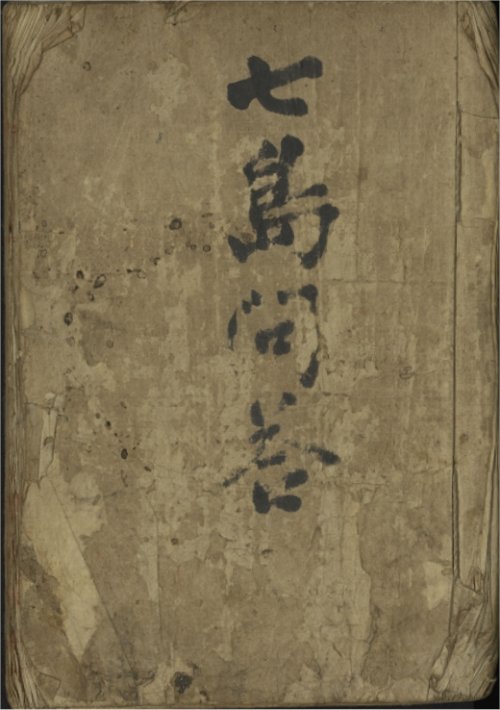 七島問答